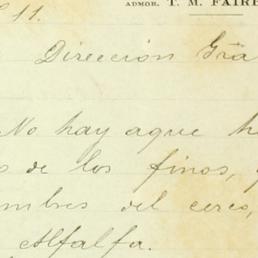 ADMOR. T. M. FAIRB
11.
Dirección Gra
No hay aque h
s de los finos,
mbres del cerco,
Alfalfa.